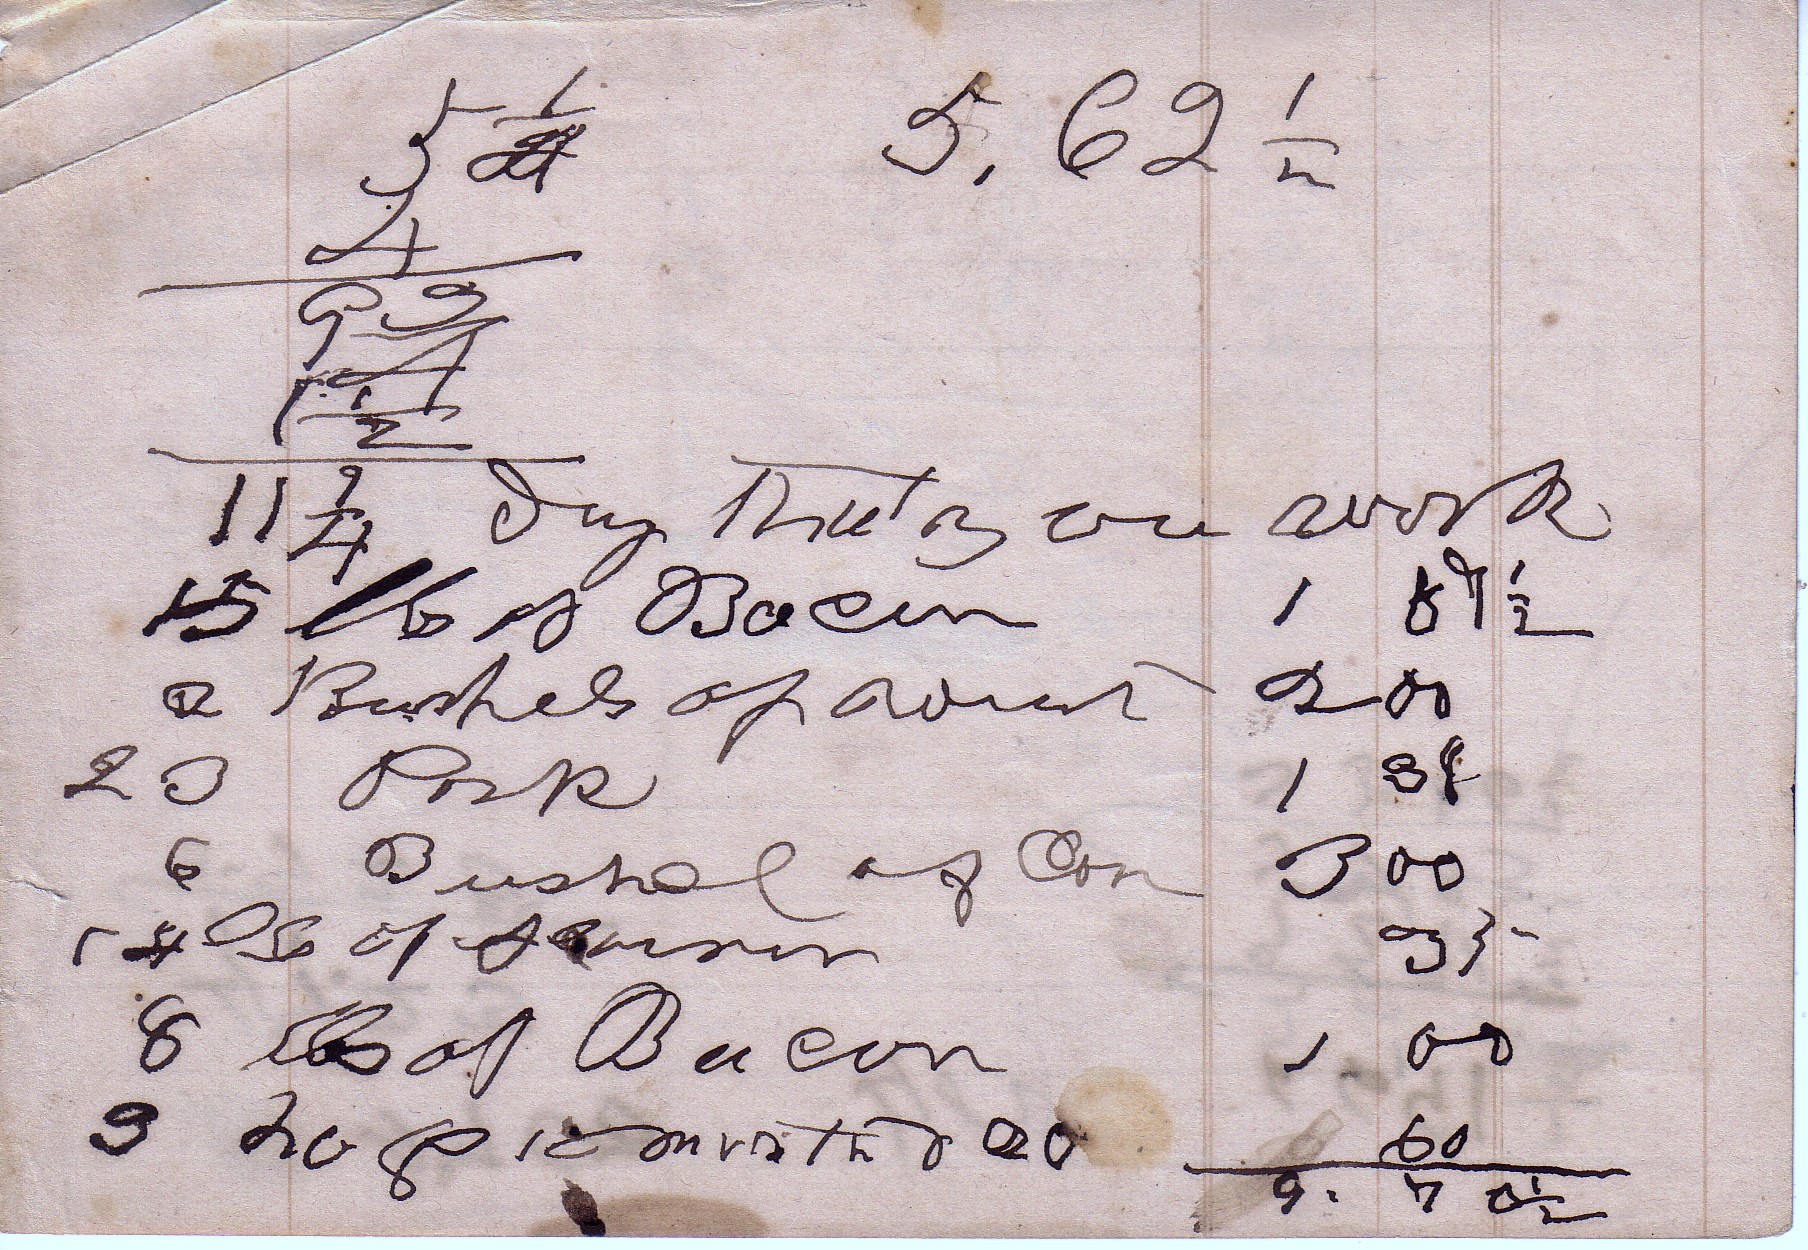 5 1/4 5.62 1/2
4
9 3/4
1 1/2
11 1/4 Day that you work
15 lb of Bacon 1 87 1/2
2 Bushels of 2 00
23 Pork 1 38
6 Bushel of Con 3 00
14 lb of 35
8 lb of Bacon 1 00
3 20 60
9. 7 0 1/2